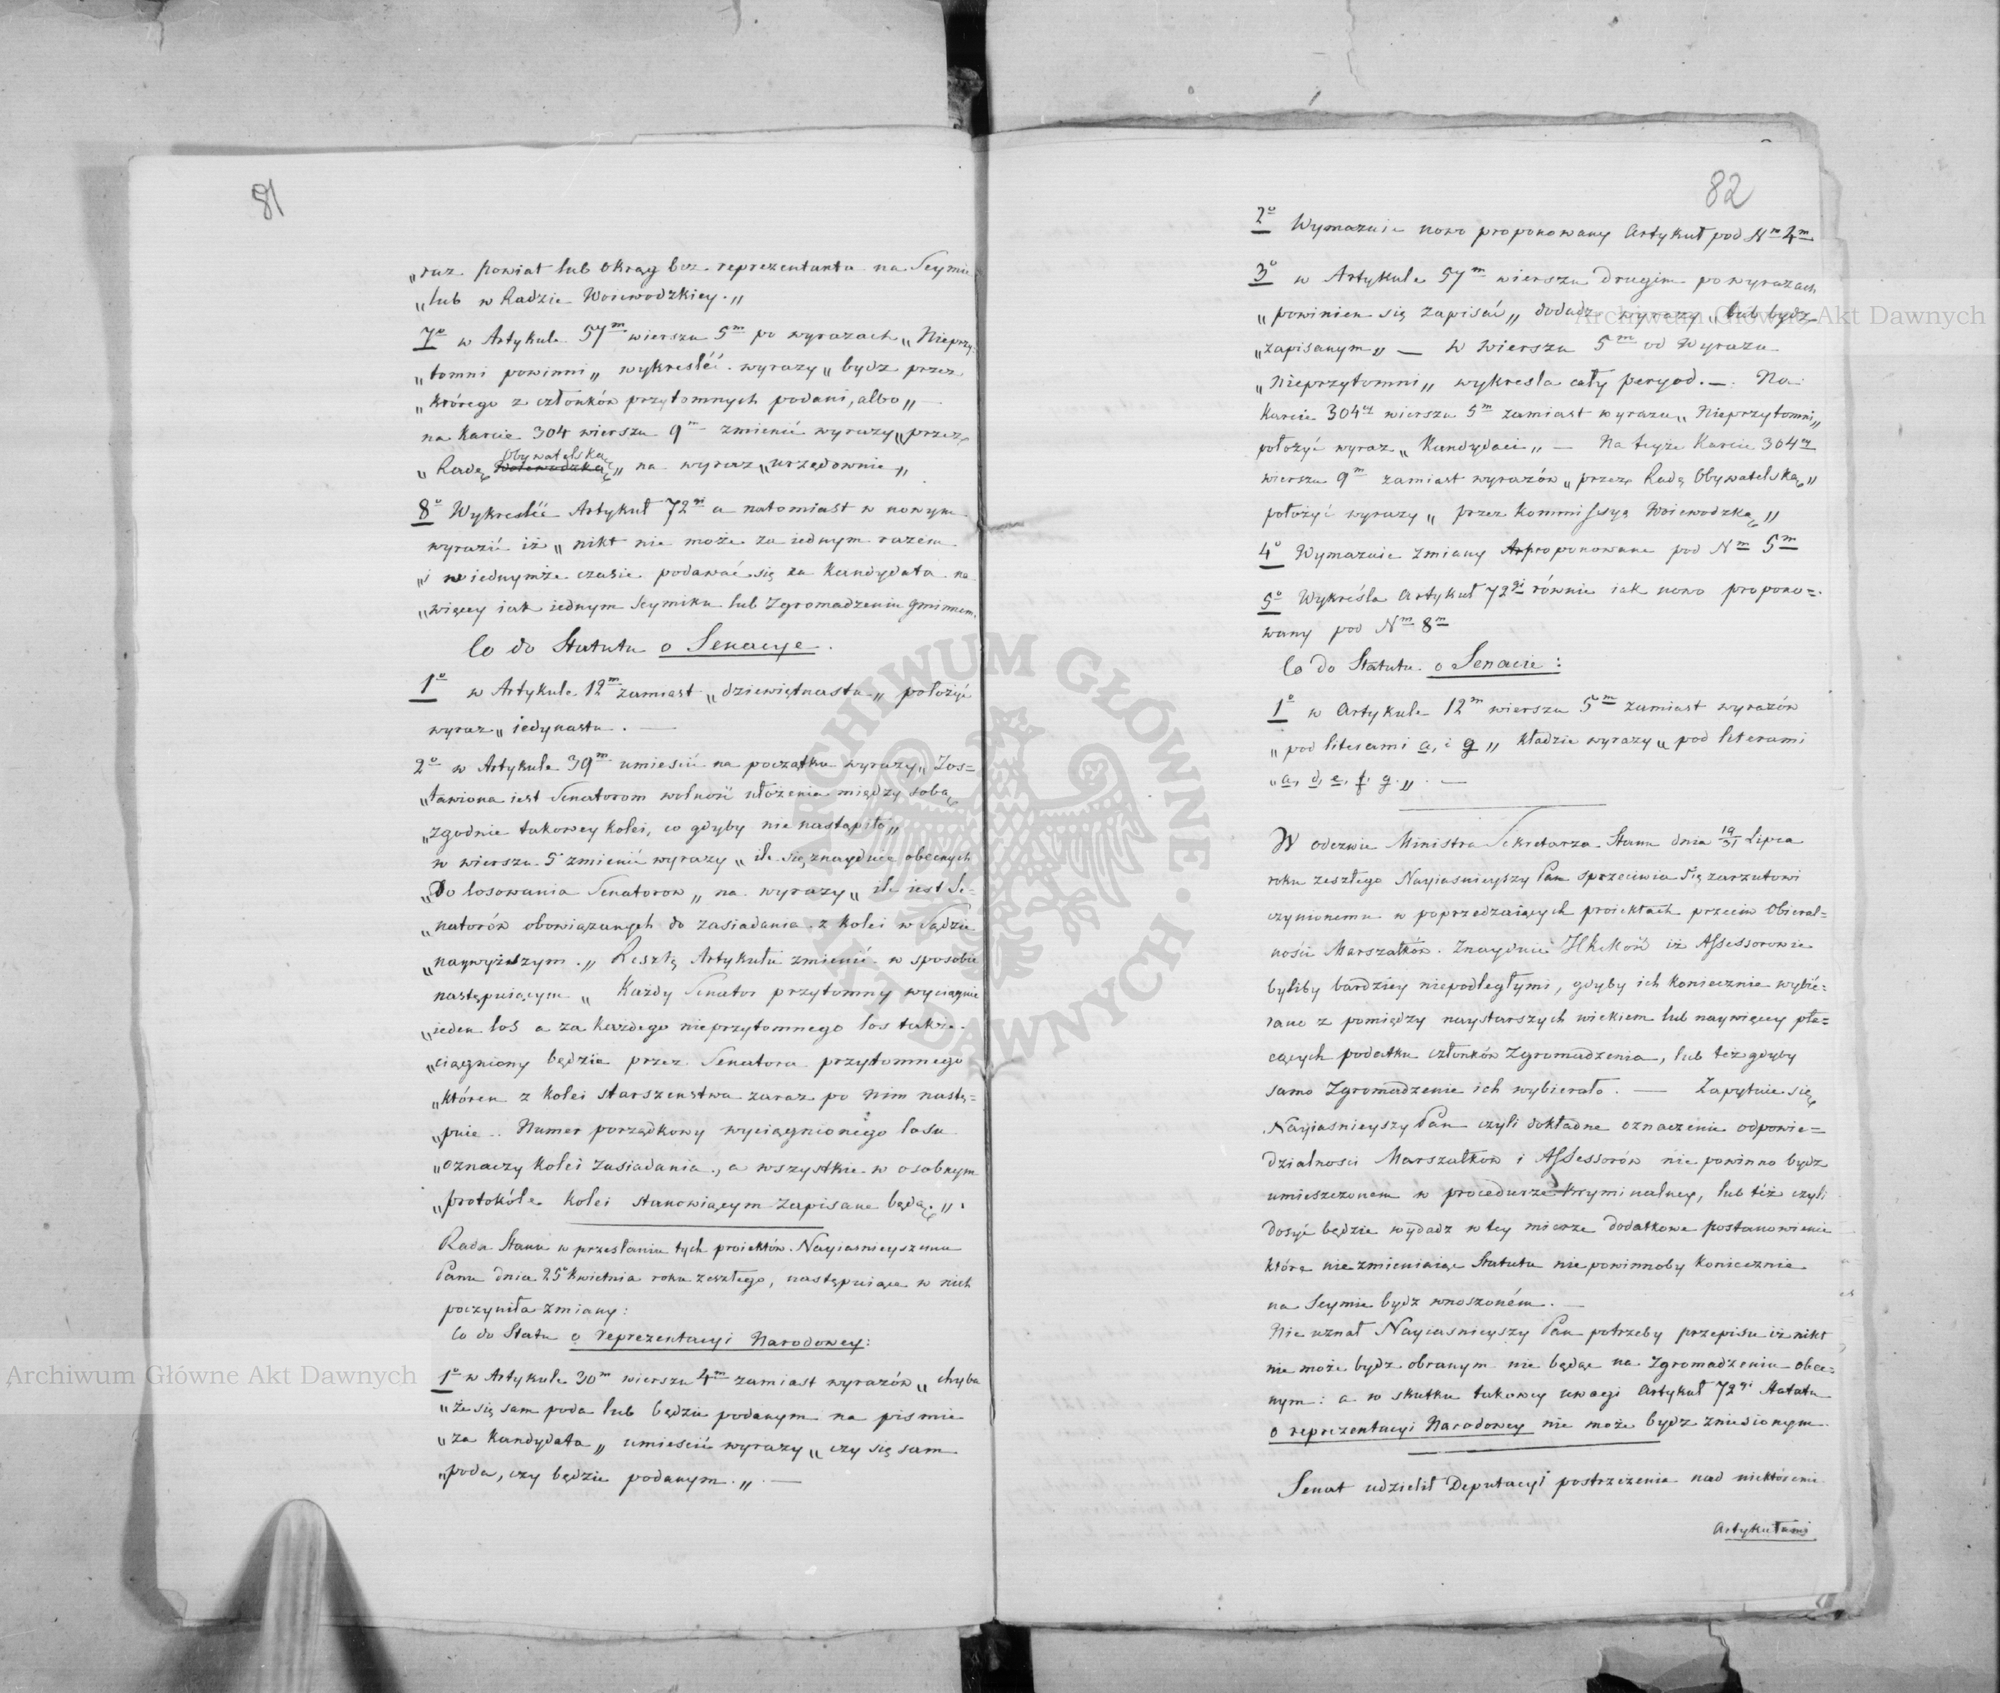 81
„raz powiat lub okrąg bez reprezentanta na Seymie
„lub w Radzie Woiewodzkiey.„
7o w Artykule 57m wierszu 5m po wyrazach „Nieprzy-
„tomni powinni„ wykreślić wyrazy „bydz przez
„którego z członków przytomnych podani, albo„
na karcie 304 wierszu 9m zmienić wyrazy „przez
Obywatelską
„Radę Woiewodzką„ na wyraz „urzędownie„
8o Wykreślić Artykuł 72gi a natomiast w nowym
wyrazić iż „nikt nie może za iednym razem
„i w iednymże czasie podawać się za kandydata na
„więcey iak iednym Seymiku lub Zgromadzeniu gminnem.
Co do Statutu o Senacye.
1o w Artykule 12m zamiast „dziewiętnastu„ położyć
wyraz „iedynastu. —
2o w Artykule 39m umieścić na początku wyrazy „Zos=
„tawiona iest Senatorom wolność ułożenia między sobą
„zgodnie takowey kolei, co gdyby nie nastąpiło„
w wierszu 5 zmienić wyrazy „ile się znayduie obecnych
„Do losowania Senatorow„ na wyrazy „ile iest Se-
„natorów obowiązanych do zasiadania z kolei w Sądzie
„naywyższym.„ Resztę Artykułu zmienić w sposobie
następuiącym „Każdy Senator przytomny wyciągnie
„ieden los a za każdego nieprzytomnego los także
„ciągniony będzie przez Senatora przytomnego
„któren z kolei starszeństwa zaraz po nim nastę=
„puie. Numer porządkowy wyciągnionego losu
„oznaczy kolei zasiadania, a wszystkie w osobnym
„protokóle kolei stanowiącym zapisane będą.„
Rada Stanu w przesłaniu tych proiektów Nayiaśnieyszemu
Panu dnia 25o kwietnia roku zeszłego, następuiące w nich
poczyniła zmiany:
Co do Statu o reprezentacyi Narodowey:
1o w Artykule 30m wierszu 4m zamiast wyrazów „chyba
„że się sam poda lub będzie podanym na pismie
„za kandydata„ umieścić wyrazy „czy się sam
„poda, czy będzie podanym.„ —
82
2o Wymazuie nowo proponowany Artykuł pod Nm 4m
3o w Artykule 57m wierszu drugim po wyrazach
„powinien się zapisać„ dodadz wyrazy „lub bydz
„zapisanym„ — w wierszu 5m od Wyrazu
„Nieprzytomni„ wykreśla cały peryod. — Na
karcie 304ey wierszu 5m zamiast wyrazu „Nieprzytomni„
położyć wyraz „Kandydaci„ — Na teyże Karcie 304ey
wierszu 9m zamiast wyrazów „przez Radę Obywatelską„
położyć wyrazy „przez Kommissyą Woiewodzką„
4o Wymazuie zmiany proponowane pod Nm 5m
5o Wykreśla Artykuł 72gi równie iak nowo propono=
wany pod Nm 8m
Co do Statutu o Senacie:
1o w Artykule 12m wierszu 5m zamiast wyrazów
„pod literami a, i g„ kładzie wyrazy „pod literami
„a, d, e, f, g.„ —
W odezwie Ministra Sekretarza Stanu dnia 19/31 Lipca
roku zeszłego Nayiaśnieyszy Pan sprzeciwia się zarzutowi
czynionemu w poprzedzaiących proiektach przeciw Obieral=
ności Marszałków. Znayduie iż Assessorowie
byliby bardziey niepodległymi, gdyby ich koniecznie wybie=
rano z pomiędzy naystarszych wiekiem lub naywięcey pła=
cących podatku członków Zgromadzenia, lub też gdyby
samo Zgromadzenie ich wybierało. — Zapytuie się
Nayiaśnieyszy Pan czyli dokładne oznaczenie odpowie=
dzialności Marszałków i Assessorów nie powinno bydz
umieszczonem w procedurze kryminalney, lub też czyli
dosyć będzie wydadz w tey mierze dodatkowe postanowienie
które nie zmieniaiąc Statutu nie powinnoby koniecznie
na Seymie bydz wnoszoném. —
Nie uznał Nayiaśnieyszy Pan potrzeby przepisu iż nikt
nie może bydz obranym nie będąc na Zgromadzeniu obec=
nym: a w skutku takowey uwagi Artykuł 72gi Statutu
o reprezentacyi Narodowey nie może bydz zniesionym.
Senat udzielił Deputacyi postrzeżenia nad niektóremi
Artykułami
Archiwum Główne Akt Dawnych
Archiwum Główne Akt Dawnych
ARCHIWUM GŁÓWNE • AKT DAWNYCH •